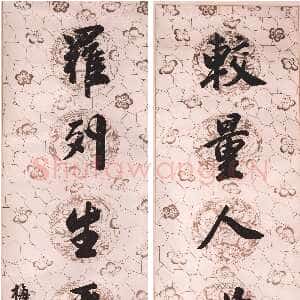 較量人
羅列生
梅
Shufawang.CN